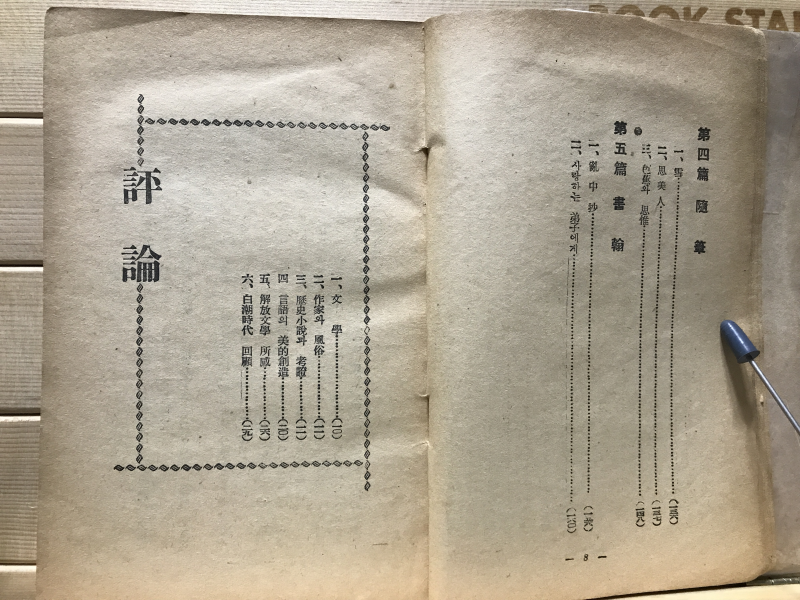 BOOK STAN
第四篇 隨筆
一、雪
二、思美人
三、色彩와 思惟
第五篇 書翰
一、亂中抄 (一六〇)
二、사랑하는 弟子에게
— 8 —
評論
一、文學 (一〇)
二、作家와 風俗 (一一)
三、歷史小說과 考證 (一二)
四 言語의 美的創造
五、解放文學 所感 (二六)
六、白潮時代 回顧 (二九)